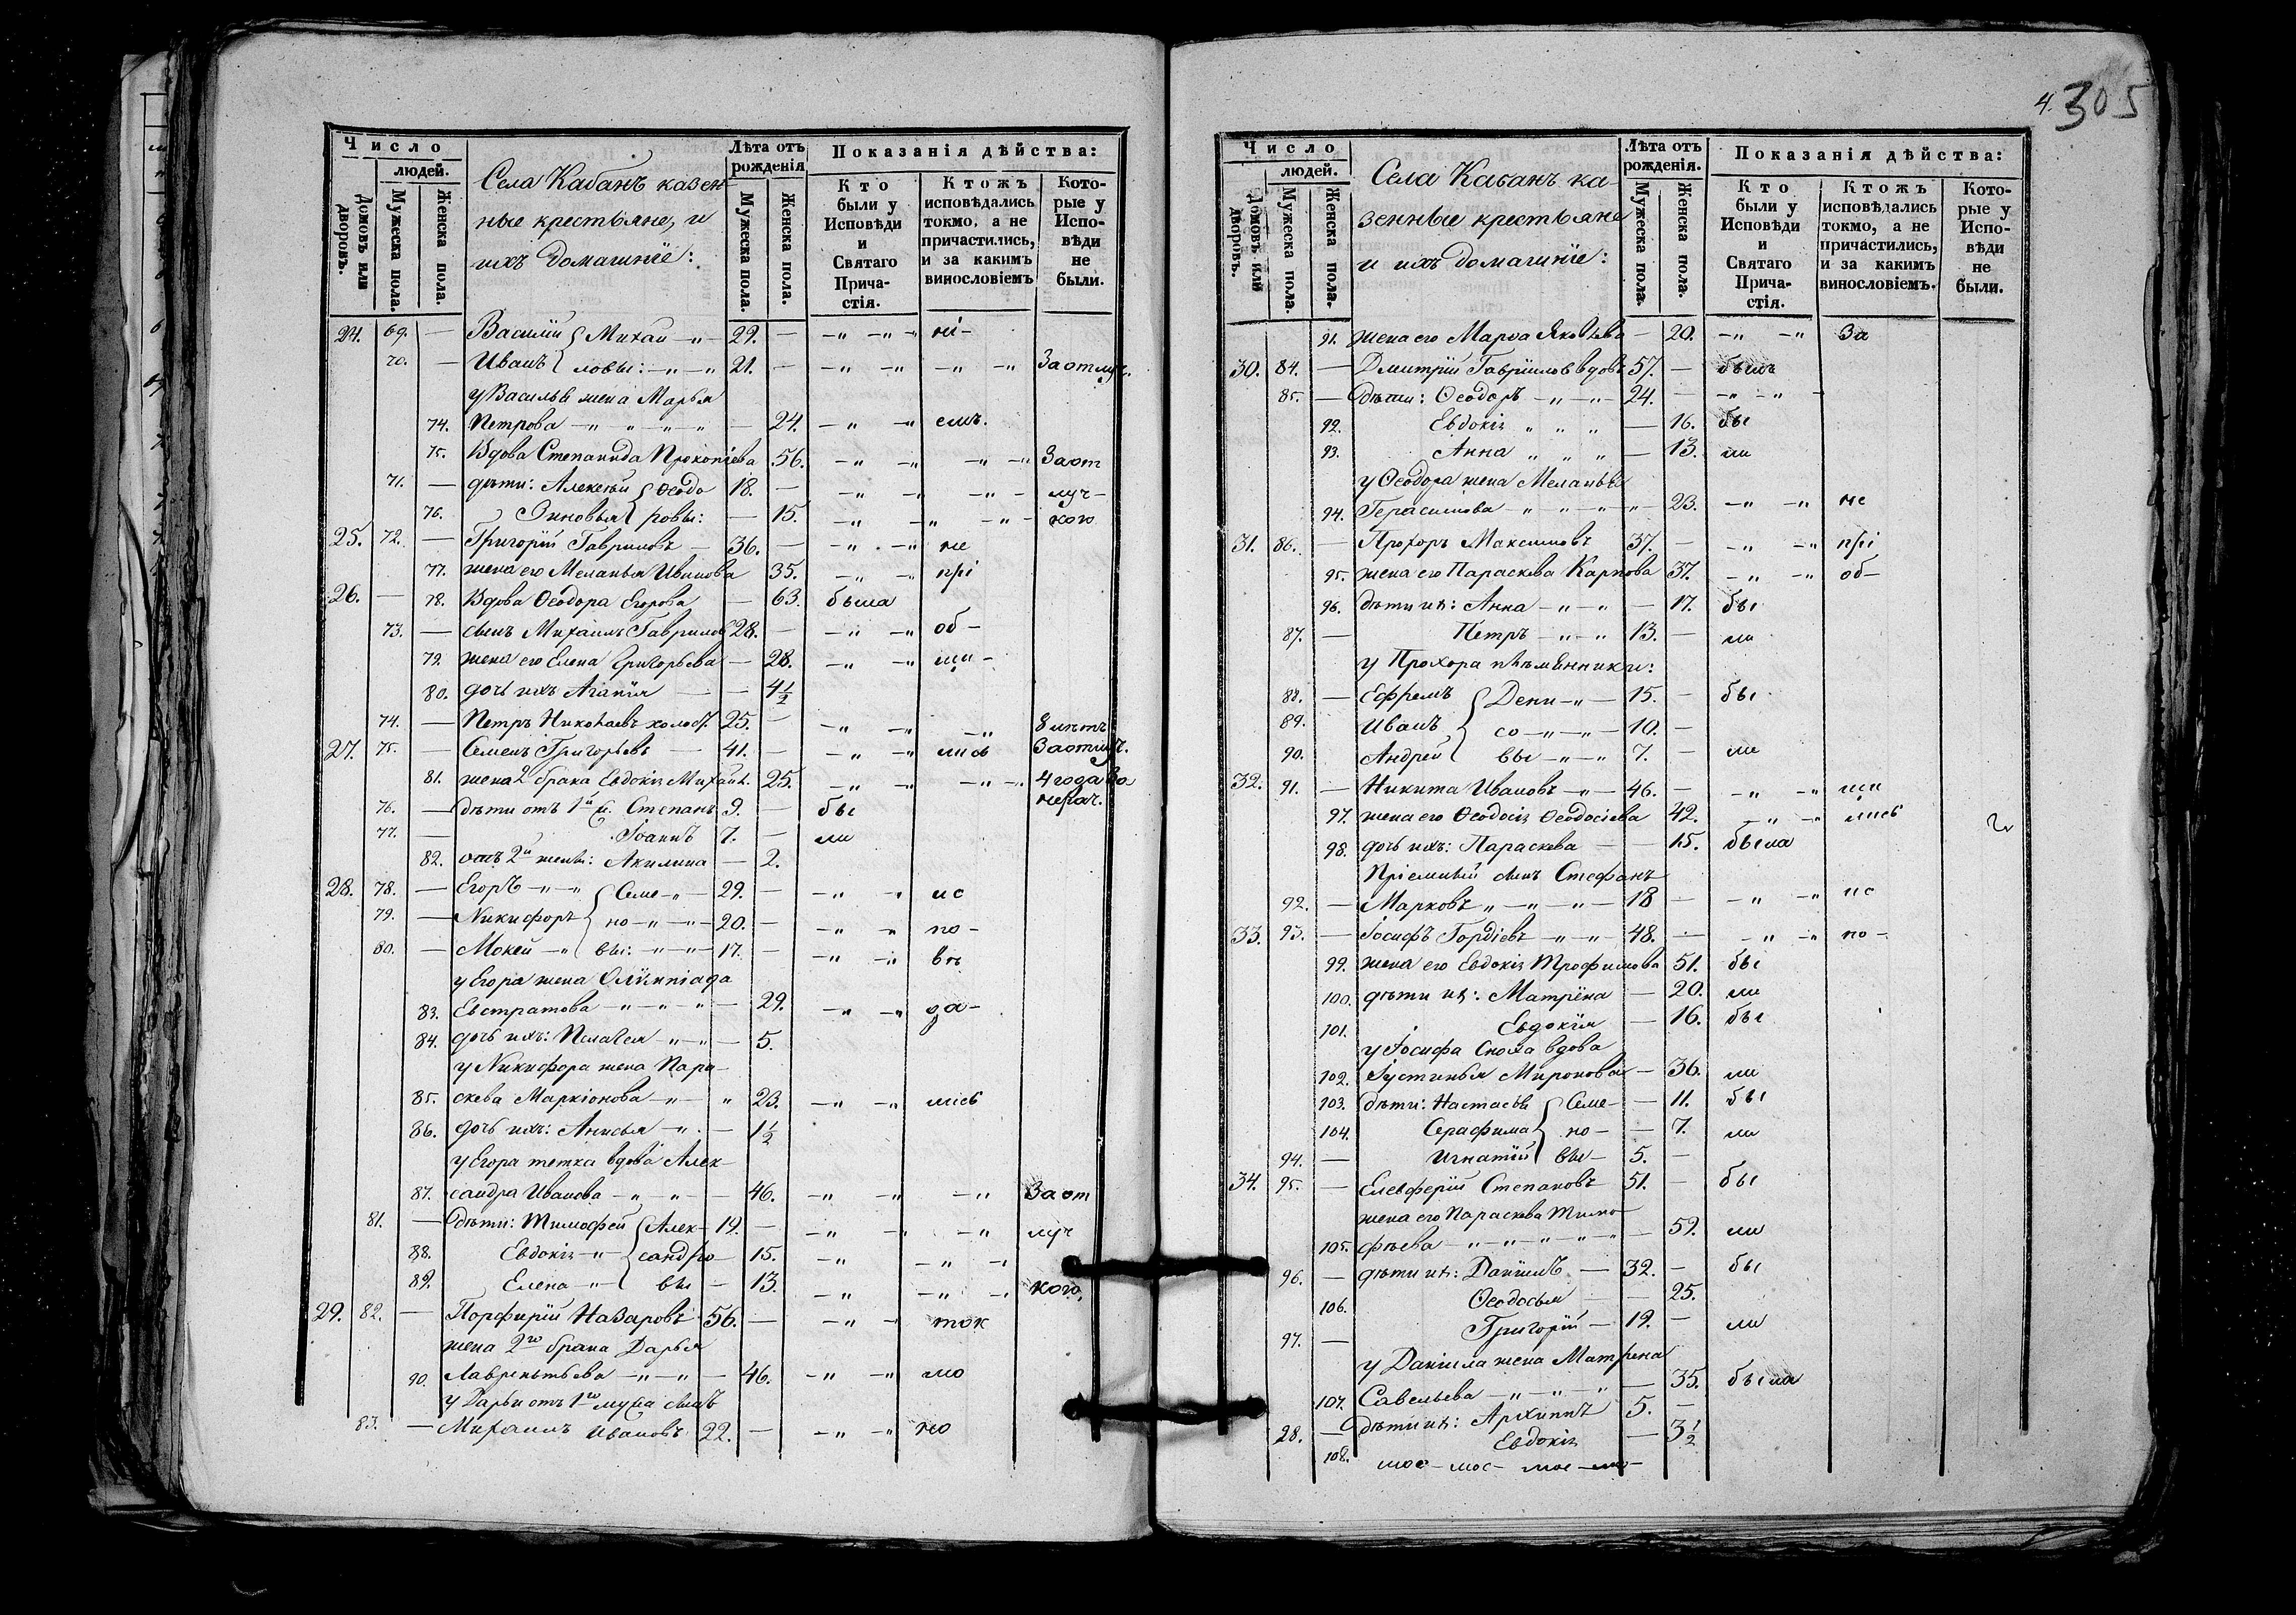 Число
людей.
Домовъ или дворовъ.
Мужеска пола.
Женска пола.
Села Кабанъ казен-
ные крестьяне, и
ихъ домашнiе:
Лѣта отъ рожденiя
Мужеска пола.
Женска пола.
Показанiя дѣйства:
Кто были у Исповѣди и Святаго Прича-стiя.
Ктожъ исповѣдались токмо, а не причастились, и за какимъ винословiемъ
Кото-рые у Испо-вѣди не были.
24. 69. — Василiй { Михаи — „ — 22. — — „ — „ — „ нi-
70. — Иванъ { ловы: — „ — „ 21. — — „ — „ — „ — „ За отлуч.
у Василья жена Марья
74. Петрова — „ „ „ „ — 24. — „ — „ емъ.
75. Вдова Степанида Прокопiева 56. — „ — „ — „ — „ За от
71. — дѣти: Алексѣй { Ѳеодо 18. — — „ — „ — „ — луч-
76. Зиновья { ровы: — 15. — „ — „ — „ — кою
25. 72. — Григорiй Гавриловъ — 36. — — „ — „ не
77. жена его Меланья Иванова 35. — „ — „ прi
26. — 78. Вдова Ѳеодора Егорова — 63. была
73. — сынъ Михаилъ Гаврилов 28. — — „ — „ об-
79. жена его Елена Григорьева — 28. — „ — „ щи-
80. дочь ихъ Агапiя — — 4½
74. — Петръ Николаевъ холост. 25. — — „ — „ — „ 8 лѣтъ
27. 75. — Семенъ Григорьевъ — 41. — — „ — „ лись За отлуч.
81. жена 2 брака Евдокiя Михайл. 25. — „ — „ — „ — „ 4 года за
76. — дѣти отъ 1й ж. Степанъ 9. — бы нерач.
77. — Iоаннъ 7. — ли
82. отъ 2й жены: Акилина — 2.
28. 78. — Егоръ — „ — „ { Семе — „ — 29. — — „ — „ ис
79. — Никифоръ { но — „ — „ — 20. — — „ — „ по-
80. — Мокей — „ { вы: — „ — „ — 17. — — „ — „ вѣ
у Егора жена Олимпiада
83. Евстратова — „ — „ — „ — 29. — „ — „ да-
84. дочь ихъ: Пелагея — „ — „ — 5.
у Никифора жена Пара-
85. скева Маркiонова — „ — „ 23. — „ — „ лись
86. дочь ихъ: Анисья — „ — 1½
у Егора тетка вдова Алек-
87. сандра Иванова — „ — „ — 46. — „ — „ — „ За от
81. — дѣти: Тимофей { Алек- 19. — — „ — „ — „ луч
88. Евдокiя — „ { сандро — 15. — „ — „ —
89. Елена — „ { вы — 13. — „ — „ — кою,
29. 82. — Порфирiй Назаровъ 56. — — „ — ток
жена 2го брака Дарья
90. Лаврентьева — „ — „ — 46. — „ — „ мо
у Дарьи отъ 1го мужа сынъ
83. — Михаилъ Ивановъ 22. — — „ — „ по
4. 305
Число
людей.
Домовъ или дворовъ.
Мужеска пола.
Женска пола.
Села Кабанъ ка-
зенные крестьяне
и ихъ домашнiе:
Лѣта отъ рожденiя.
Мужеска пола.
Женска пола.
Показанiя дѣйства:
Кто были у Исповѣди и Святаго Прича-стiя.
Ктожъ исповѣдались токмо, а не причастились, и за какимъ винословiемъ.
Кото-рые у Испо-вѣди не были.
91. жена его Марѳа Яковлева — 20. — „ — „ За
30. 84. — Дмитрiй Гаврiиловъ вдовъ 57. — былъ
85. — дѣти: Ѳеодоръ — „ — „ — 24. — — „ — „ —
92. Евдокiя „ „ „ — 16. бы
93. Анна „ „ „ — 13. ли
у Ѳеодора жена Меланья
94. Герасимова „ „ „ — 23. — „ — „ не
31. 86. — Прохоръ Максимовъ 37. — — „ — „ прi
95. жена его Параскева Карпова 37. — „ — „ об-
96. дѣти ихъ: Анна — „ — „ — 17. бы
87. — Петръ — „ — „ 13. — ли
у Прохора племянники:
88. — Ефремъ { Дени — „ — 15. — бы
89. Иванъ { со — „ — „ — 10. —
90. Андрей { вы — „ — „ 7. — ли
32. 91. — Никита Ивановъ — „ — 46. — — „ — „ щи
97. жена его Ѳеодосiя Ѳеодосiева 42. — „ — „ лись
98. дочь ихъ: Параскева — — 15. была
Прiемный сынъ Стефанъ
92. — Марковъ „ — „ — „ — 18 — — „ — „ ис
33. 93. — Iосифъ Гордiевъ — „ — „ 48. — — „ — „ по-
99. жена его Евдокiя Трофимова 51. бы
100. дѣти ихъ: Матрена — 20. ли
101. Евдокiя — 16. бы
у Iосифа сноха вдова
102. Iустинья Миронова — 36. ли
103. дѣти: Настасья { Семе — 11. бы
104. Серафима { но — 7. ли
94. — Игнатiй { вы — 5. —
34. 95. — Елевферiй Степановъ 51. — бы
жена его Параскева Тимо-
105. фѣева — „ — „ — „ — „ — 59. ли
96. — дѣти ихъ: Данiилъ — 32. — бы
106. Ѳеодосья — 25.
97. — Григорiй — 19. — ли
у Данiила жена Матрена
107. Савельева — „ — „ — „ — 35. была
28. — дѣти ихъ: Архиппъ 5. —
108. Евдокiя — 3½